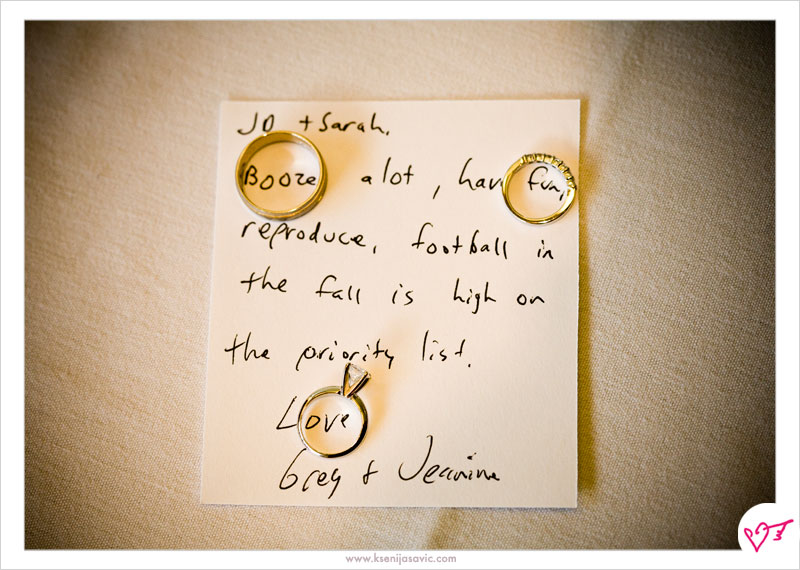 Jo + Sarah,
Booze alot, have fun,
reproduce, football in
the fall is high on
the priority list.
Love
Greg & Jeannine
www.ksenijasavic.com